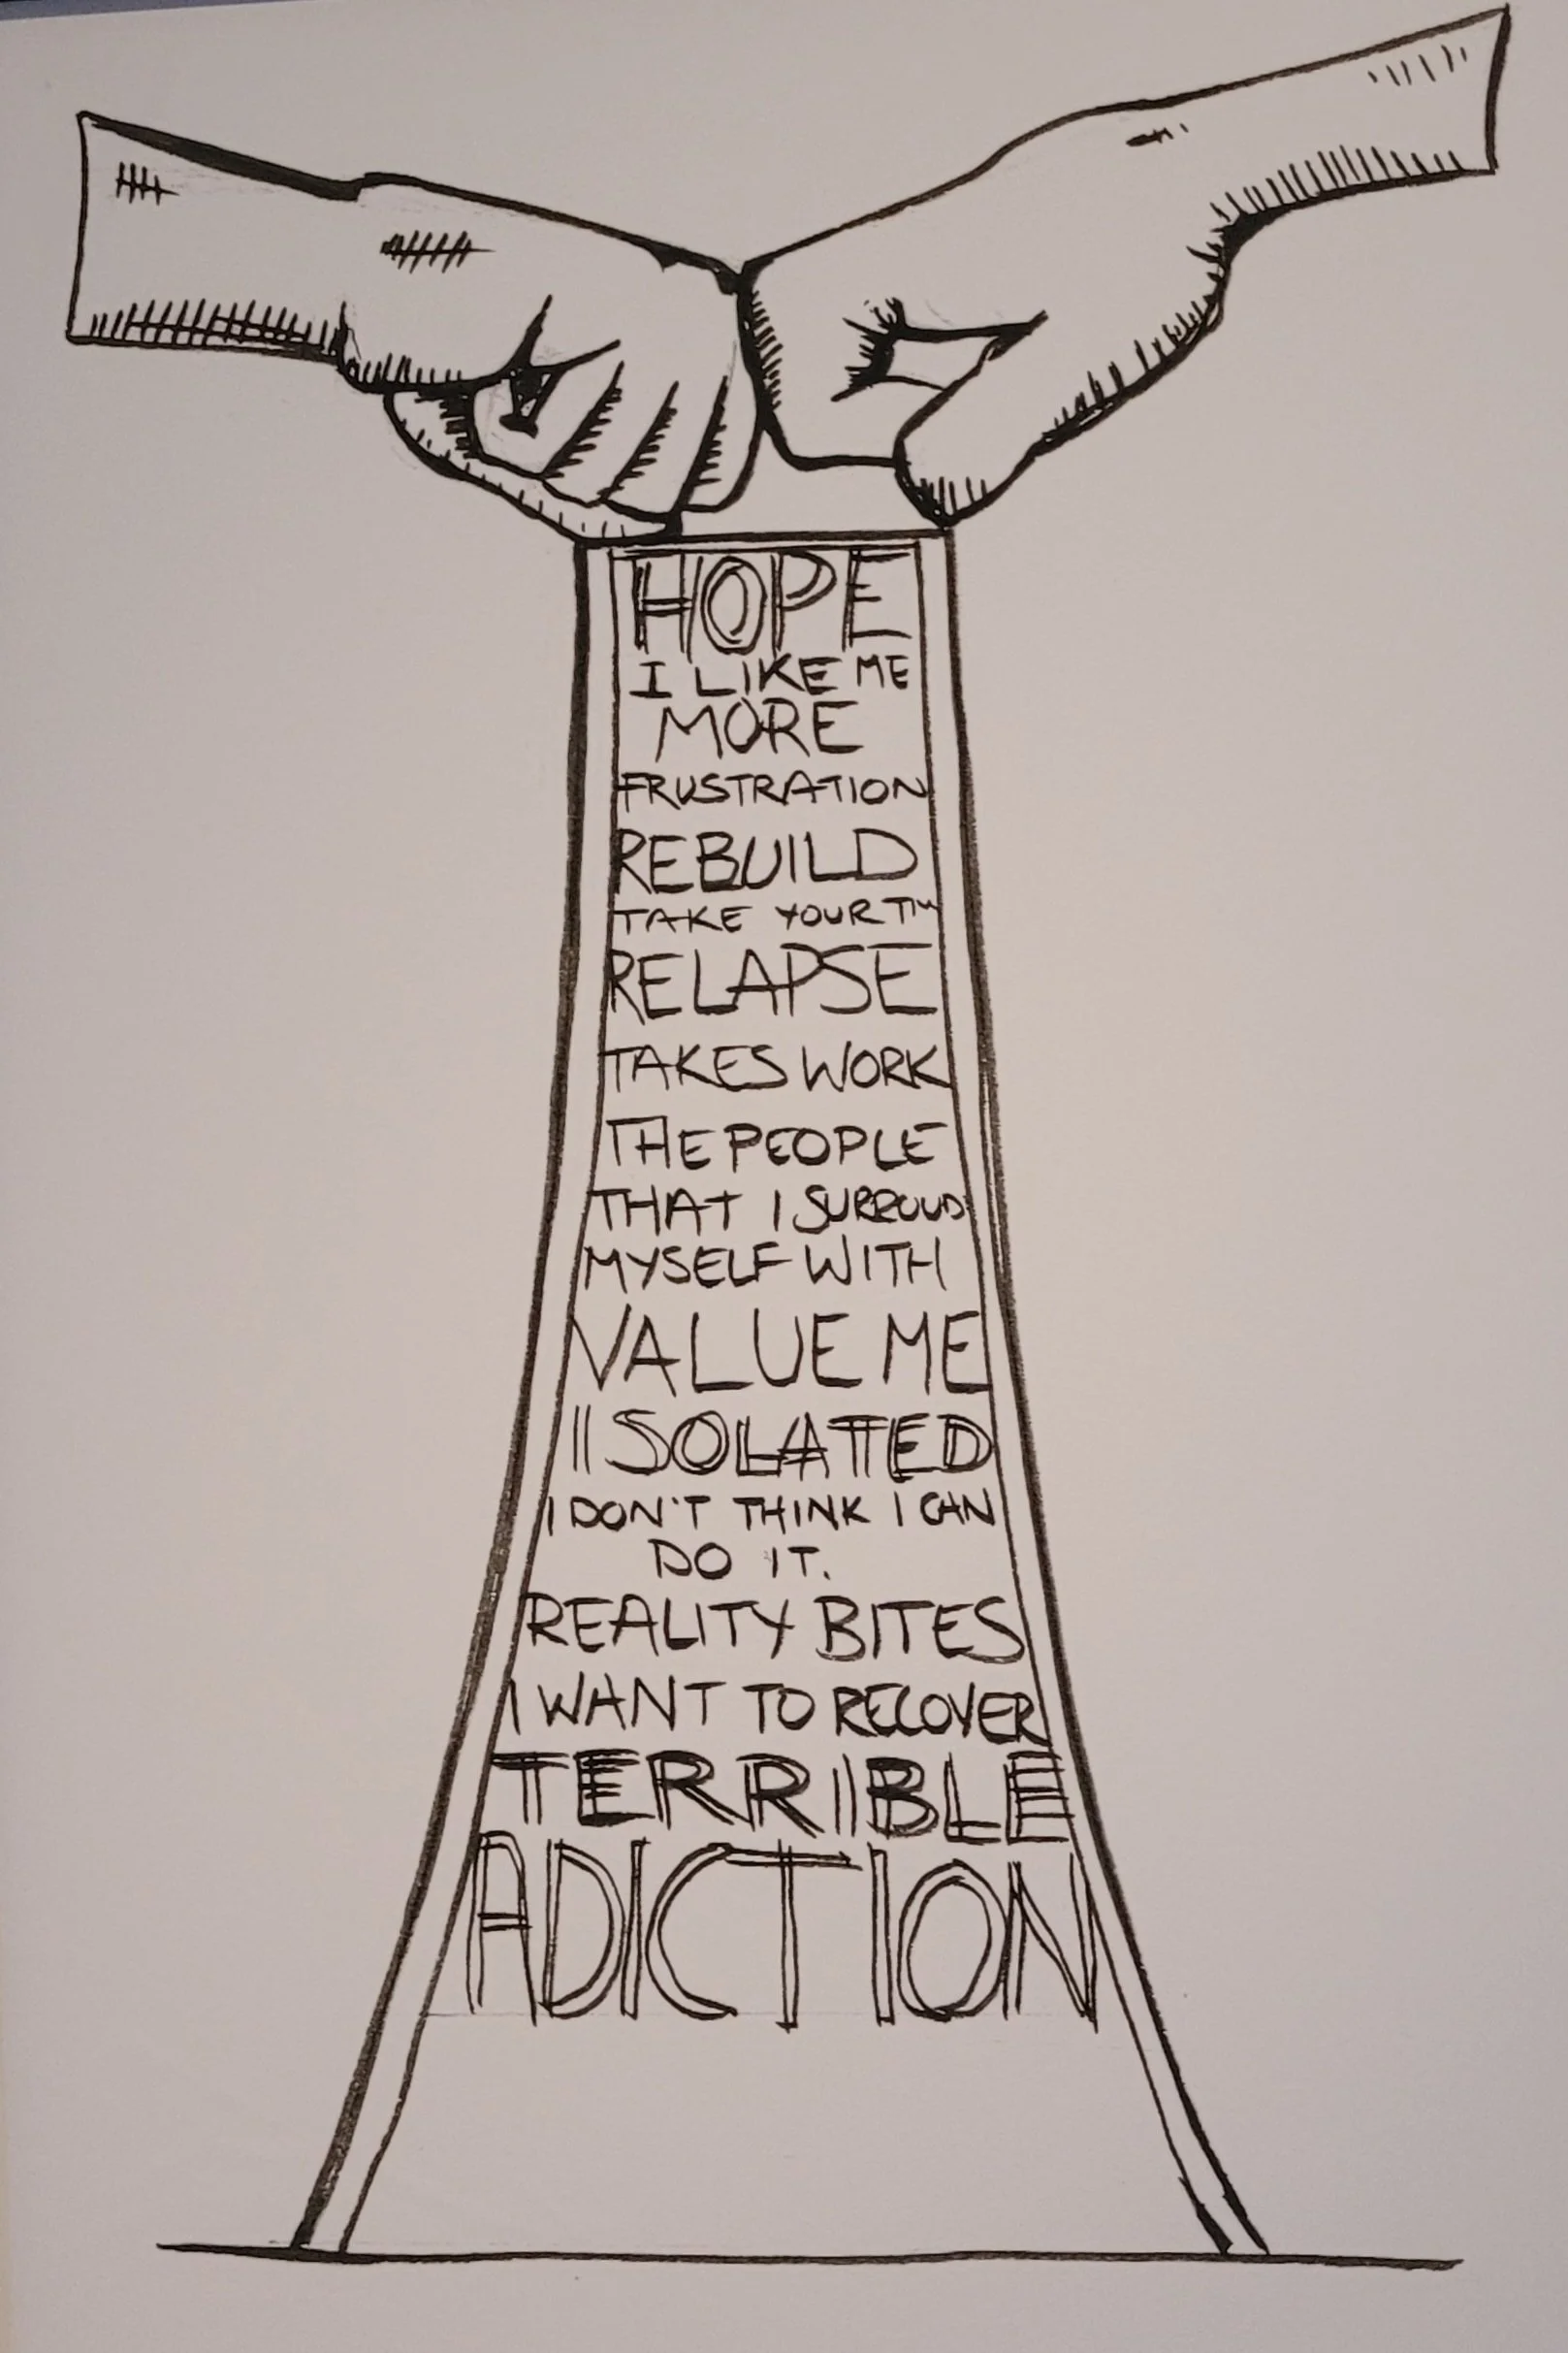 HOPE
I LIKE ME
MORE
FRUSTRATION
REBUILD
TAKE YOUR TIM
RELAPSE
TAKES WORK
THE PEOPLE
THAT I SURROUD
MYSELF WITH
VALUE ME
ISOLATED
I DON'T THINK I CAN
DO IT.
REALITY BITES
I WANT TO RECOVER
TERRIBLE
ADICTION